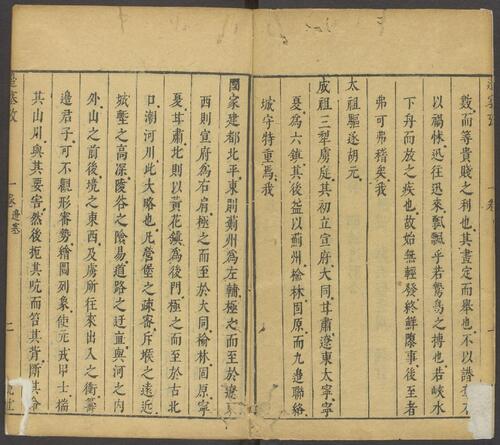 數而等貴賤之利也其畫定而舉也不以譖
以禍怵迅往迅來飄飄乎若鷙鳥之搏也若峽水
下舟而放之疾也故始無輕發終鮮隳事後至者
弗可弗稽矣我
太祖驅逐胡元
成祖三犁虜庭其初立宣府大同甘肅遼東大寧寧
夏為六鎮其後益以薊州榆林固原而九邊聯絡
城守特重焉我
國家建都北平東則薊州為左輔極之而至於遼
西則宣府為右肩極之而至於大同榆林固原寧
夏甘肅北則以黃花鎮為後門極之而至於古北
口潮河川此大略也凡營堡之疎密斥堠之遠近
城塹之高深陵谷之險易道路之迂直與河之內
外山之前後境之東西及虜所往來出入之衝籌
邊君子可不觀形審勢繪圖列象使元戎甲士揣
其山川與其要害然後扼其吭而笞其背斷其
塞攷
一卷
邊墓
二